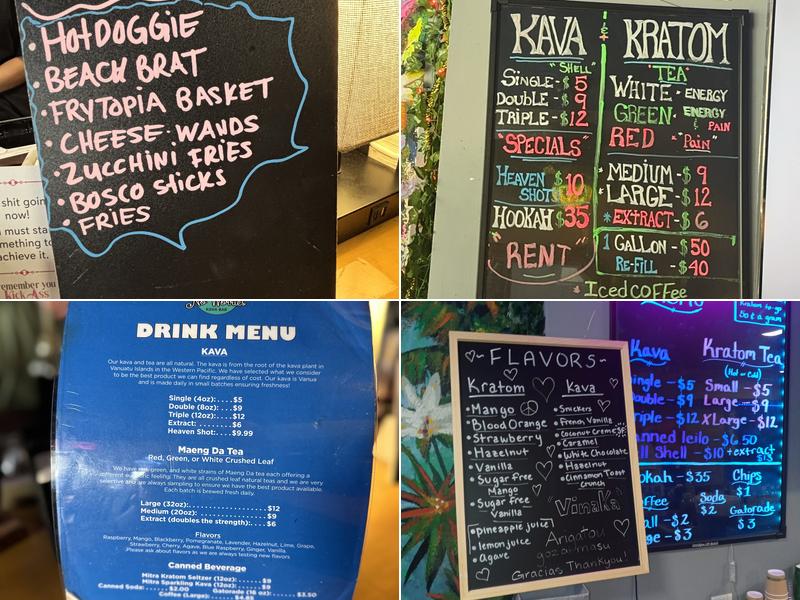 • HOTDOGGIE
• BEACH BRAT
• FRYTOPIA BASKET
• CHEESE WANDS
• ZUCCHINI FRIES
• BOSCO STICKS
• FRIES
shit goin
now!
must sta
mething to
achieve it.
remember you
kick Ass
KAVA & KRATOM
"SHELL"
Single - $5
Double - $9
TRIPLE - $12
"SPECIALS"
HEAVEN SHOT $10
HOOKAH $35
"RENT"
"TEA"
WHITE • ENERGY
GREEN • ENERGY & PAIN
RED • "Pain"
* MEDIUM - $9
* LARGE - $12
* EXTRACT - $6
1 GALLON - $50
RE-FILL - $40
Iced COFFEE
No Worries
KAVA BAR
DRINK MENU
KAVA
Our kava and tea are all natural. The kava is from the root of the kava plant in
Vanuatu Islands in the Western Pacific. We have selected what we consider
to be the best product we can find regardless of cost. Our kava is Vanua
and is made daily in small batches ensuring freshness!
Single (4oz):....$5
Double (8oz):....$9
Triple (12oz):....$12
Extract:........$6
Heaven Shot:....$9.99
Maeng Da Tea
Red, Green, or White Crushed Leaf
We have red, green, and white strains of Maeng Da tea each offering a
different feeling! They are all crushed leaf natural teas and we are very
selective and are always sampling to ensure we have the best product available.
Each batch is brewed fresh daily.
Large (32oz):....................$12
Medium (20oz):..................$9
Extract (doubles the strength):....$6
Flavors
Raspberry, Mango, Blackberry, Pomegranate, Lavender, Hazelnut, Lime, Grape,
Strawberry, Cherry, Agave, Blue Raspberry, Ginger, Vanilla.
Please ask about flavors as we are always testing new flavors
Canned Beverage
Mitra Kratom Seltzer (12oz):......$9
Mitra Sparkling Kava (12oz):......$9
Canned Soda:......$2.00 Gatorade (16 oz):......$3.50
Coffee (Large):......$4.85
~FLAVORS~
Kratom
• Mango
• Blood Orange
• Strawberry
• Hazelnut
• Vanilla
• Sugar free Mango
• Sugar free Vanilla
• pineapple juice
• lemon juice
• Agave
Kava
• Snickers
• French Vanilla
• Coconut Creme SF
• Caramel
• White Chocolate
• Hazelnut
• Cinnamon Toast Crunch
Vinaka
Arigatou
gozaimasu
Gracias Thankyou!
Kratom to-go
50¢ a gram
Kava
ingle - $5
ouble - $9
riple - $12
anned leilo - $6.50
ll Shell - $10 + extract $15
Kratom Tea
(Hot or Cold)
Small - $5
Large - $9
XLarge - $12
ookah - $35
ffee
all - $2
ge - $3
Soda
$2
Chips
$1
Gatorade
$3